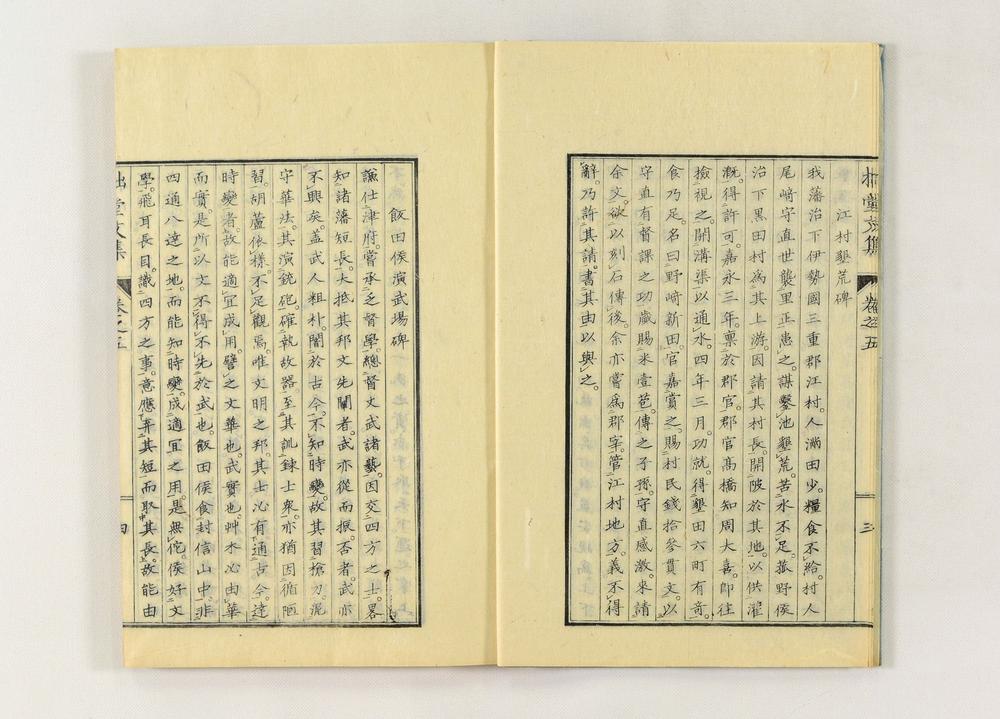 拙堂文集
卷之五
三
江村墾荒碑
我藩治下伊勢國三重郡江村。人滋田少。糧食不給。村人
尾﨑守直世襲里正患之。謀鑿池墾荒。苦水不足。菰野侯
治下黑田村爲其上游。因請其村長。開陂於其地。以供灌
漑。得許可。嘉永三年。禀於郡官。郡官高橋知周大喜。即往
撿視之。開溝渠以通水。四年三月。功就。得墾田六町有竒。
食乃足。名曰野﨑新田。官嘉賞之。賜村民錢拾參貫文。以
守直有督課之功。歳賜米壹苞。傳之子孫。守直感激。來請
余文。欲以刻石傳後。余亦嘗爲郡宰。管江村地方。義不得
辭。乃許其請。書其由以與之。
飯田侯演武場碑
謙仕津府。嘗承乏督學。總督文武諸藝。因交四方之士。畧
知諸藩短長。大抵其邦文先闡者。武亦從而振。否者。武亦
不興矣。盖武人粗朴。闇於古今。不知時變。故其習搶刀。泥
守華法。其演銃砲。確執故器。至其訓錬士衆。亦猶因循陋
習。胡蘆依樣。不足觀焉。唯文明之邦。其士必有通古今。達
時變者。故能適宜成用。譬之文華也。武實也。艸木必由華
而實。是所以文不得不先於武也。飯田侯食封信山中。非
四通八達之地。而能知時變。成適宜之用。是無佗。侯好文
學。飛耳長目。識四方之事。意應弃其短而取其長。故能由
拙堂文集
卷之五
四